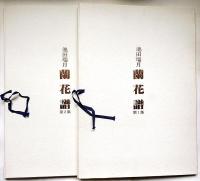 池田瑞月
蘭花譜
第1集
池田瑞月
蘭花譜
第2集